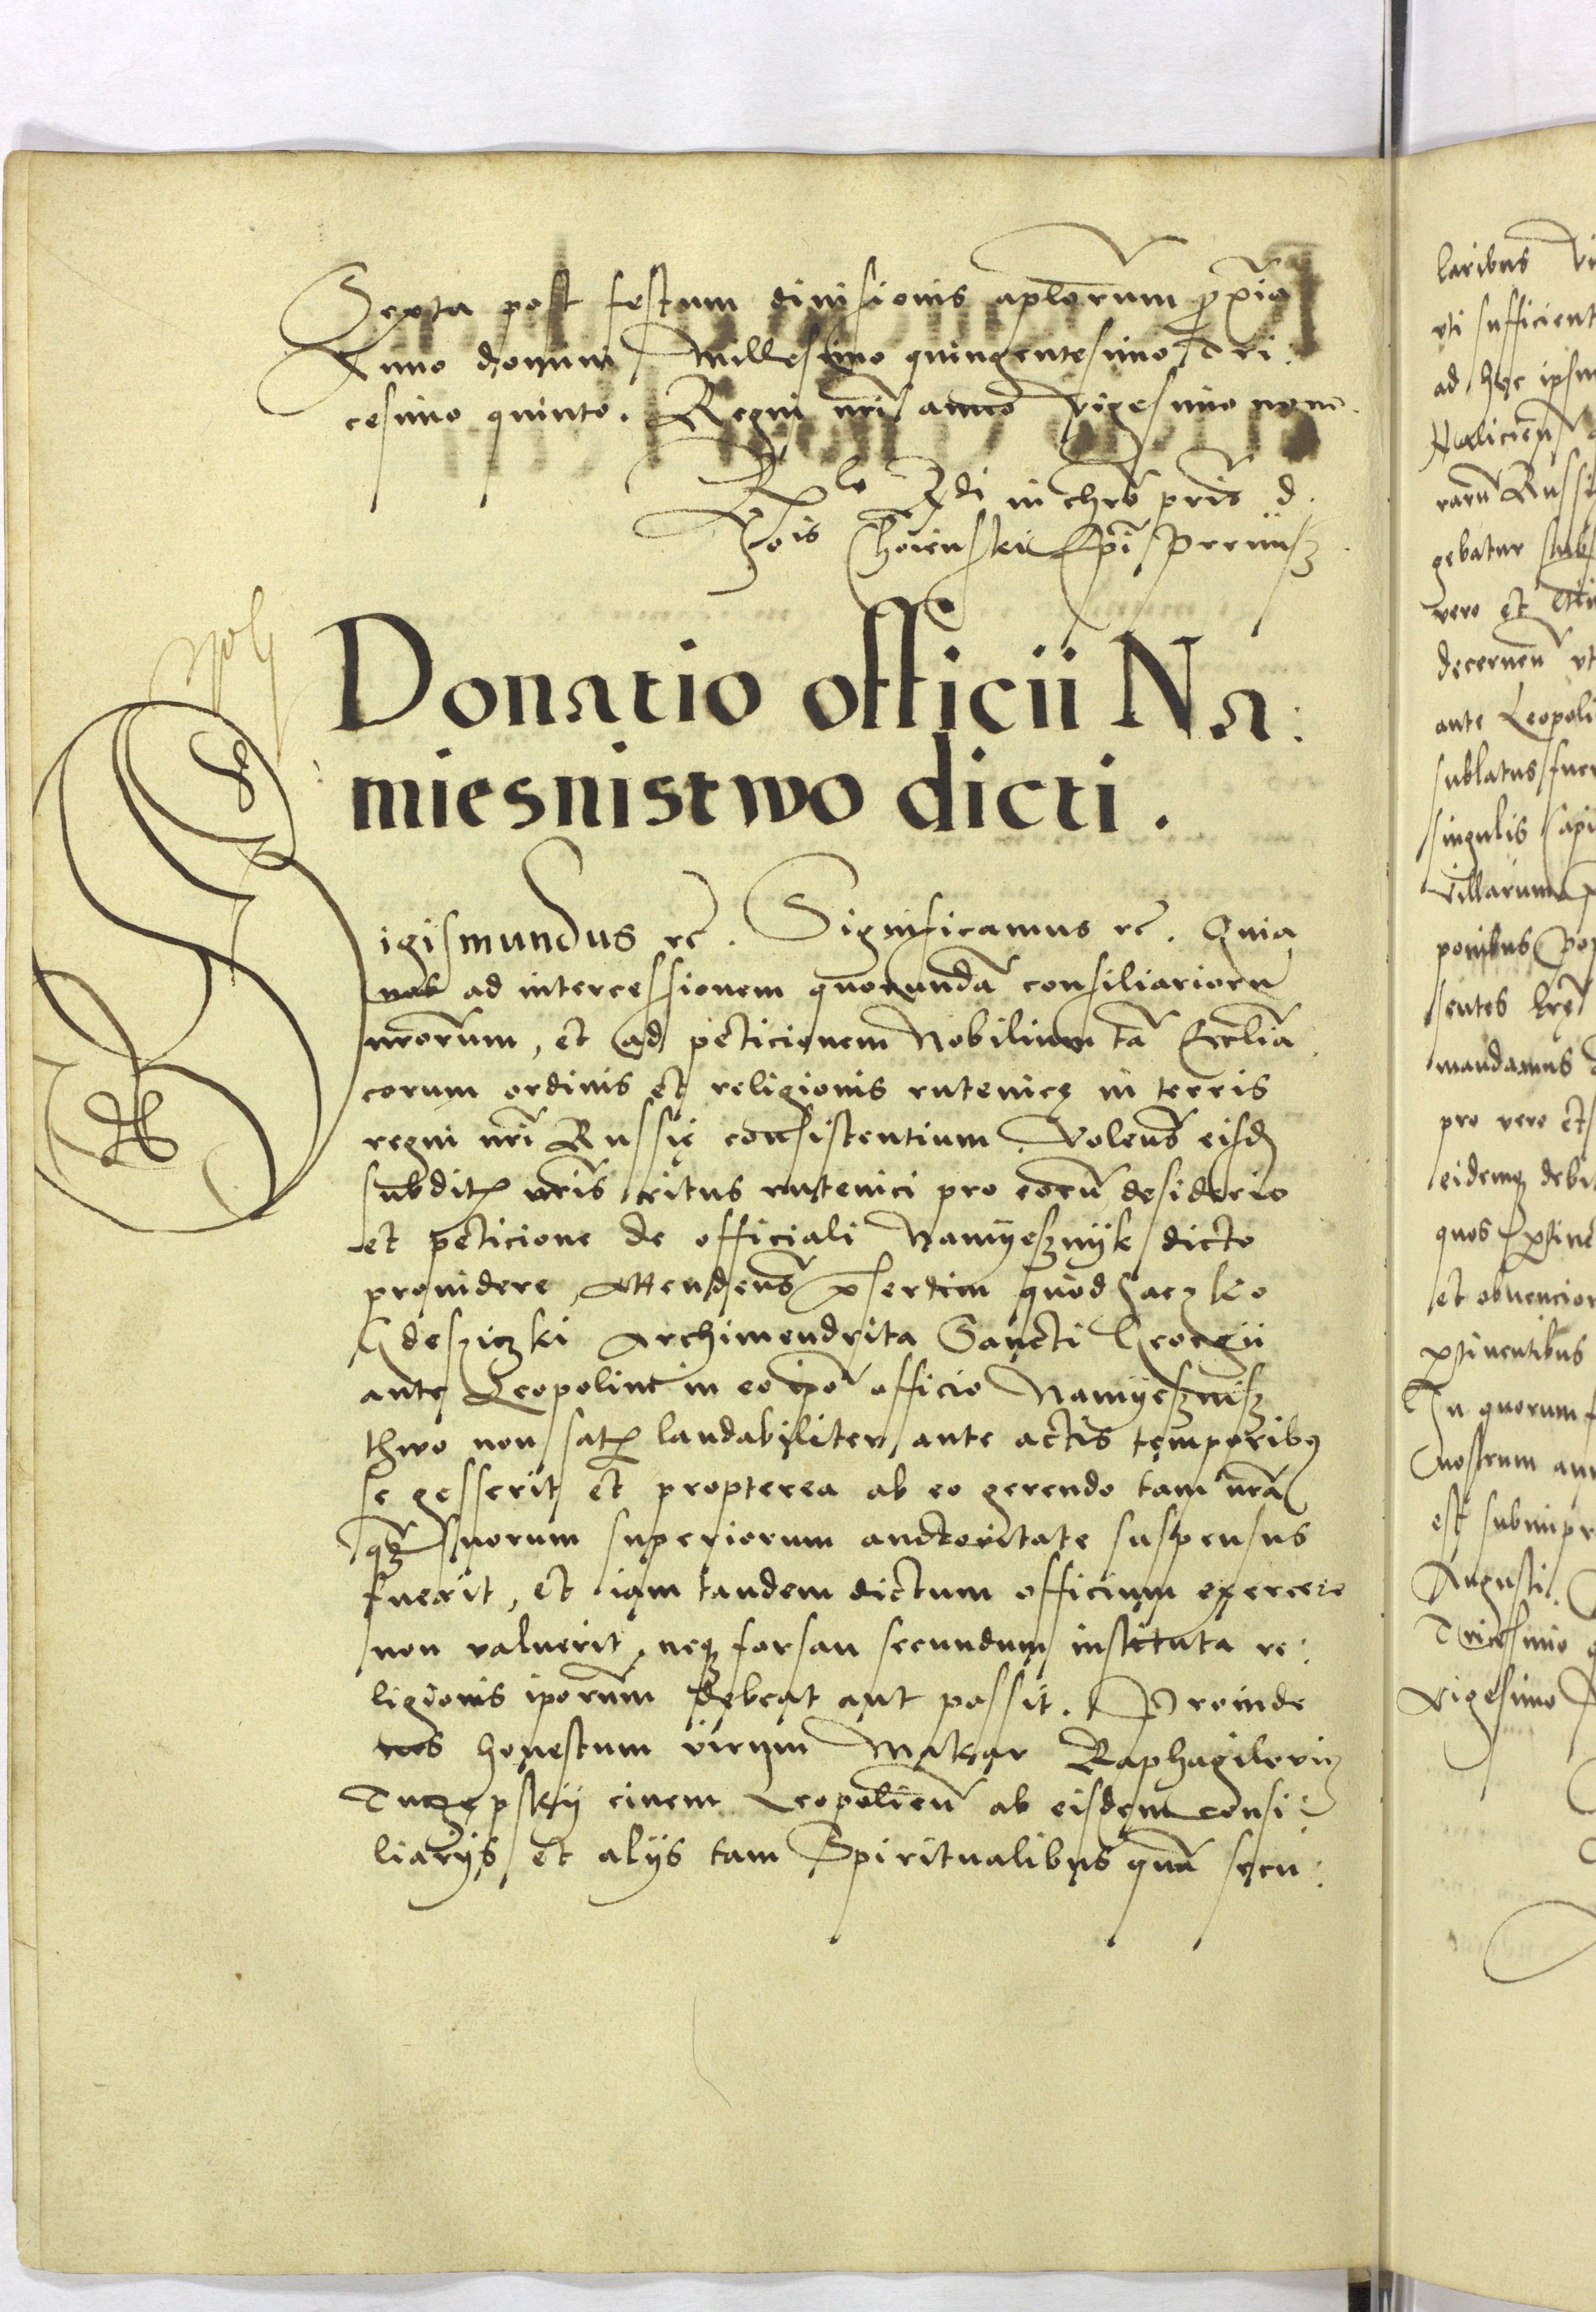 Sexta post festum divisionis aplorum proxia
Anno domini Millesimo quingentesimo Tri:
cesimo quinto. Regni nri anno vigesimo nono.
Rlo Rdi in chro pris d.
Jois Choienski Epi Premisz
Donatio officii Na:
miesnistwo dicti.
Sigismundus rc. Significamus rc. Quia
nos ad intercessionem quorundã consiliariorũ
nrorum, et ad peticionem Nobilium tã Ecclia
corum ordinis et religionis rutenicę in terris
regni nri Russię consistentium. Volens eisd
subditis nris ritus rutenici pro eorũ desiderio
et peticione de officiali Namyesznyk dicto
providere, Attendens presertim quod Jaczko
Hdesziczki Archimendrita Sancti Georgii
ante Leopolim in eo ipo officio Namyesznisz
thwo non satis laudabiliter ante actis temporibus
se gesserit et propterea ab eo gerendo tam nrã
quam suorum superiorum auctoritate suspensus
fuerit, et iam tandem dictum officium exercere
non valuerit, neque forsan secundum instituta re:
ligionis iporum debeat aut possit. Proinde
nos honestum virum Makar Raphagilovicz
Tuczapskij civem Leopolien ab eisdem consi:
liarijs et alijs tam Spiritualibus quã secu:
laribus
uti sufficient
ad hęc ipsum
Halicien
rarũ Russi
gebatur sub
vero et
decernen ut
ante Leopoli
sublatus fuer
singulis Capi
Villarum
ponibus Pop
sentes lrę
mandamus
pro vero et
eidemque debi
quos pertinet
et obvencion
pertinentibus
In quorum f
nostrum
est subimpr
Augusti
Tricesimo q
vigesimo